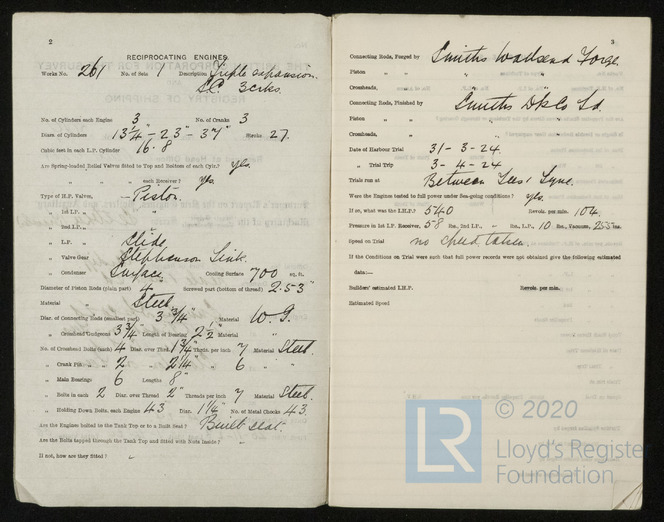 2
RECIPROCATING ENGINES.
Works No. 261 No. of Sets 1 Description Triple expansion.
S.C. 3 crks.
No. of Cylinders each Engine 3 No. of Cranks 3
Diars. of Cylinders 13 1/4" - 23" - 37" Stroke 27.
Cubic feet in each L.P. Cylinder 16.8
Are Spring-loaded Relief Valves fitted to Top and Bottom of each Cylr.? Yes.
" " each Receiver? Yes.
Type of H.P. Valves, — Piston.
" 1st I.P. "
" 2nd I.P. "
" L.P. " Slide.
" Valve Gear Stephenson Link.
" Condenser Surface. Cooling Surface 700 sq. ft.
Diameter of Piston Rods (plain part) 4" Screwed part (bottom of thread) 2.53"
Material Steel
Diar. of Connecting Rods (smallest part) 3 3/4" Material W.I.
" Crosshead Gudgeons 3 3/4" Length of Bearing 2 1/2" Material
No. of Crosshead Bolts (each) 4 Diar. over Thrd. 1 3/4" Thrds. per inch 7 Material Steel.
" Crank Pin " " 2 " 2 1/4" " 6 "
" Main Bearings 6 Lengths 8"
" Bolts in each 2 Diar. over Thread 2" Threads per inch 7 Material Steel.
" Holding Down Bolts, each Engine 43 Diar. 1 1/4" No. of Metal Chocks 43.
Are the Engines bolted to the Tank Top or to a Built Seat? Built seat.
Are the Bolts tapped through the Tank Top and fitted with Nuts Inside? "
If not, how are they fitted? "
3
Connecting Rods, Forged by Smiths Wallsend Forge.
Piston " "
Crossheads, "
Connecting Rods, Finished by Smiths Dk Co Ld.
Piston " "
Crossheads, "
Date of Harbour Trial 31-3-24.
" Trial Trip 3-4-24
Trials run at Between Tees & Tyne.
Were the Engines tested to full power under Sea-going conditions? Yes.
If so, what was the I.H.P.? 540 Revols. per min. 104.
Pressure in 1st I.P. Receiver, 58 lbs., 2nd I.P., - lbs., L.P., 10 lbs., Vacuum, ins.
Speed on Trial no speed taken
If the Conditions on Trial were such that full power records were not obtained give the following estimated
data:—
Builders' estimated I.H.P. Revols. per min.
Estimated Speed
© 2020
LR
Lloyd's Register
Foundation